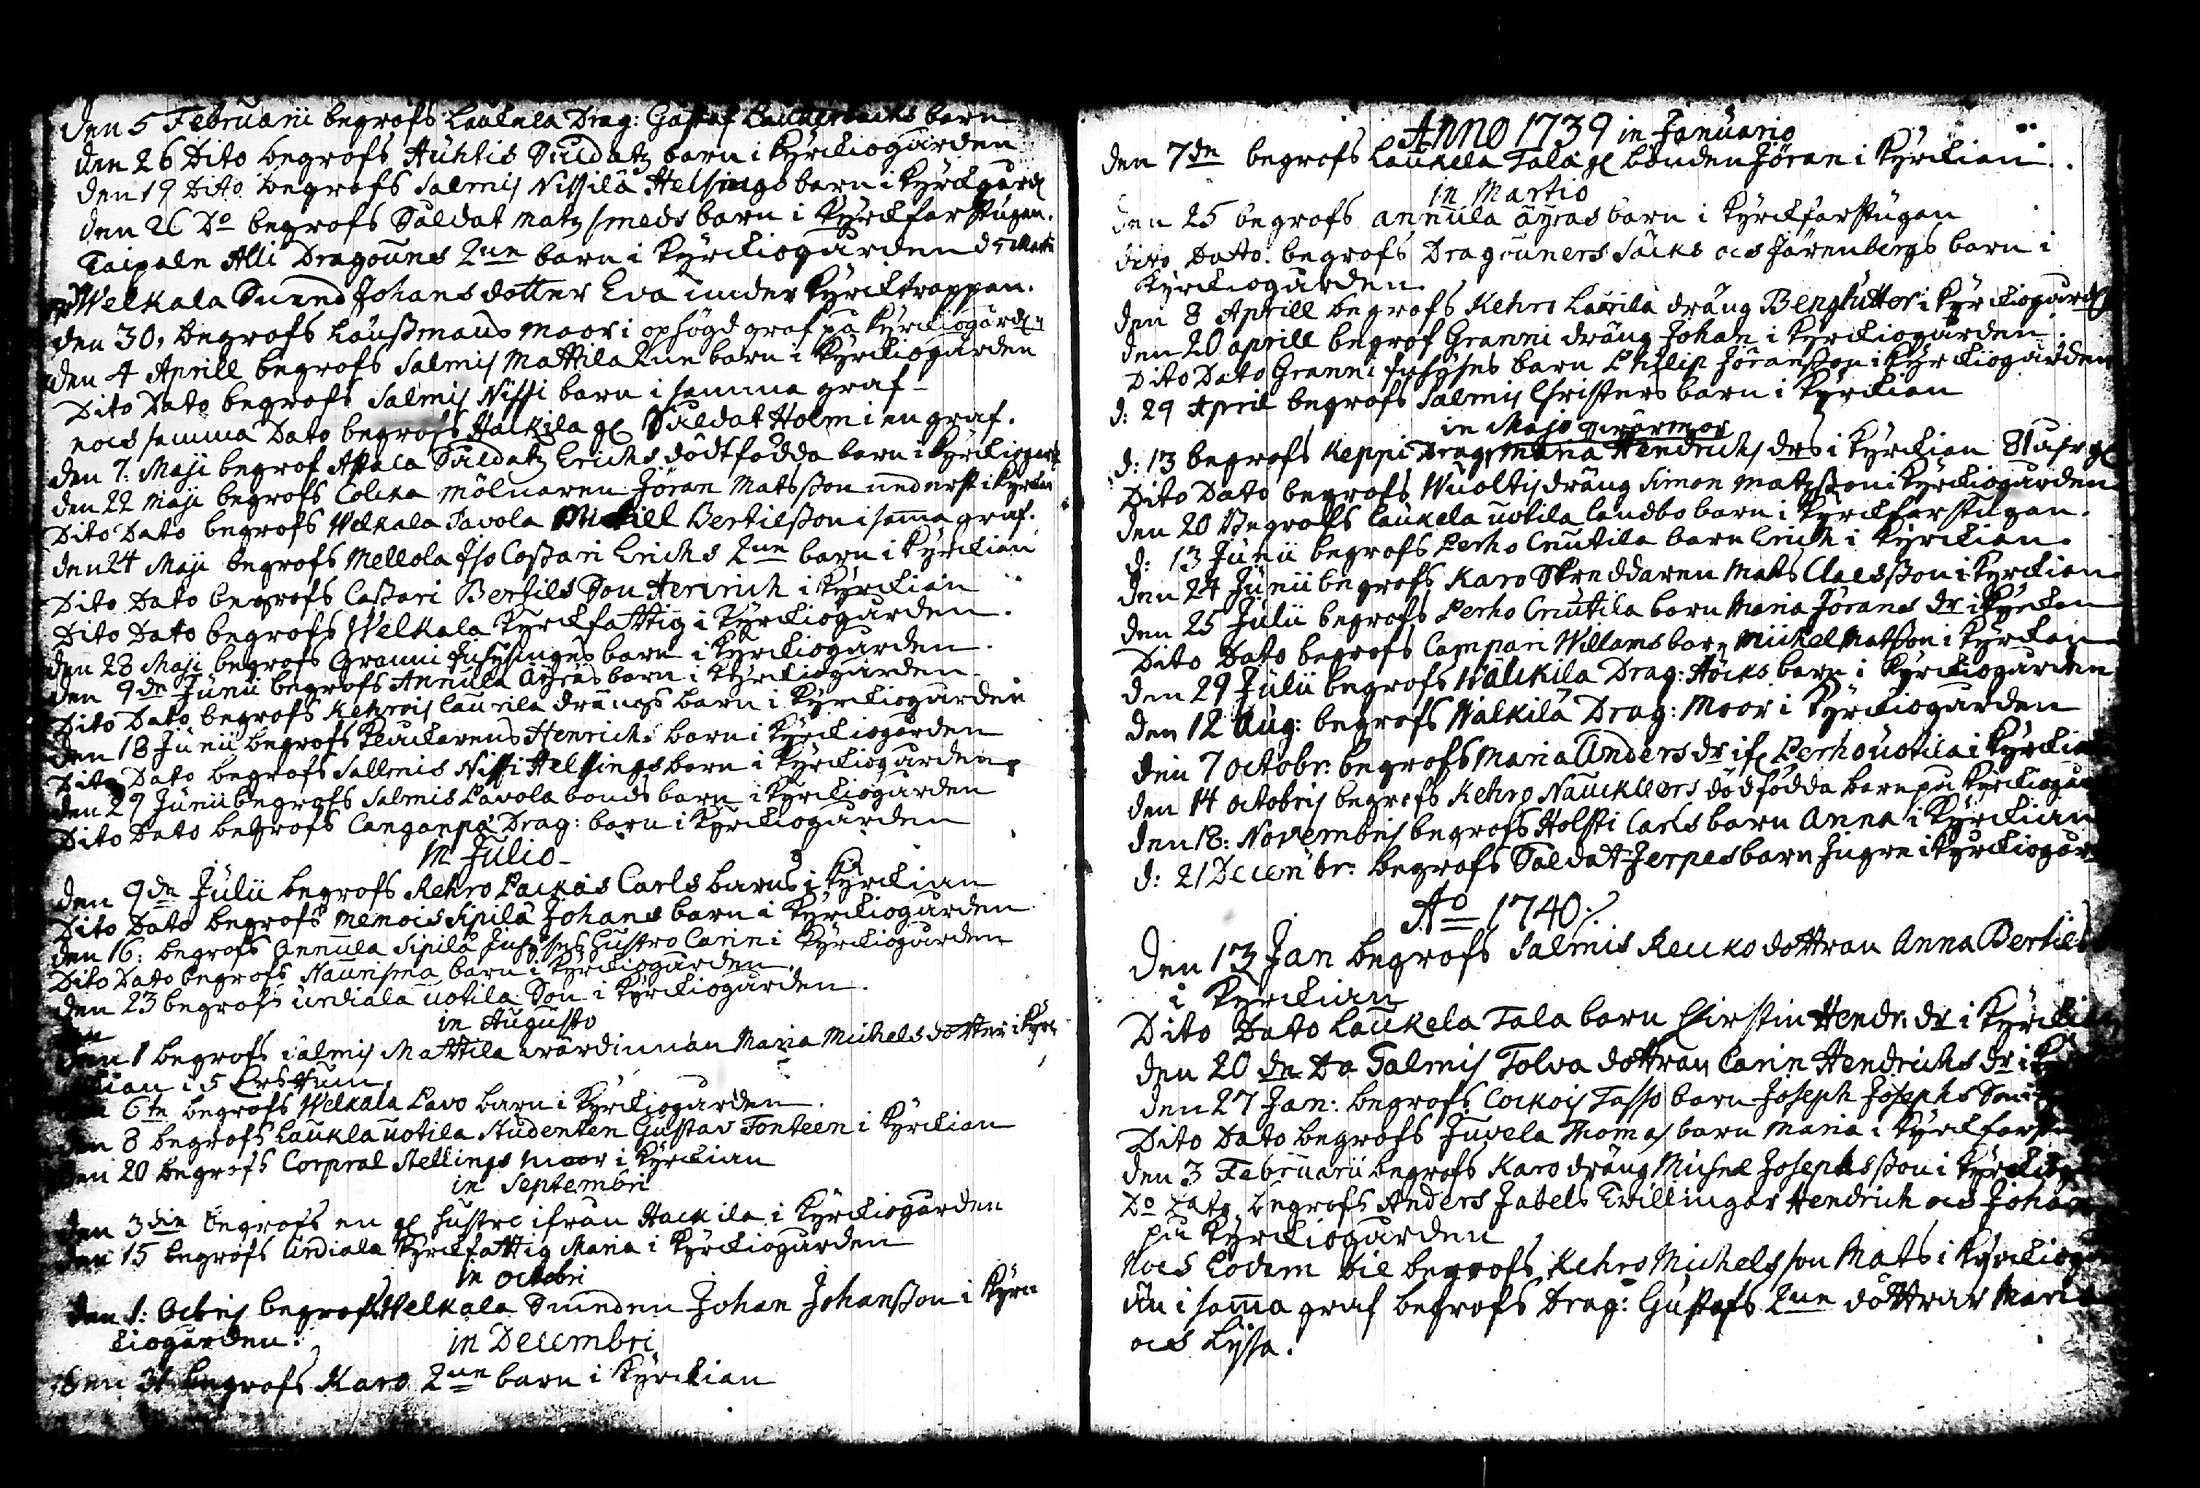 den 5 Februarii begrofs Laukela Drag: Gustaf barn
den 26 Dito begrofs Huhtis Suldatz barn i Kyrckiogården
den 19 Dito begrofs Salmis Nissilä Helsings barn i Kyrckgård
den 26 Do begrofs Saldat Matz Smeds barn i Kyrckfarstugan.
Taipaln Alli Dragouns 2ne barn i Kyrckiogården d 5 Martii
Welkala Svend Johans dotter Eva under Kyrcktrappan.
den 30, begrofs Länßmans moor i ophögd graf på Kyrckiogård:n
den 4 Aprill begrofs Salmis Mattila 2ne barn i Kyrckiogården
Dito Dato begrofs Salmis Nissi barn i samma graf
noch samma Dato begrofs Hackila gl Suldat Holm i en graf.
den 7: Maji begrof Appala Suldatz Erichs dödtfödda barn i Kyrckiogård
den 22 Maji begrofs Colcka mölnaren Jöran Matsßon underst i Kyrckian
Dito Dato begrofs Welkala Pavola Mickill Bertilßon i sam̄a graf.
den 24 Maji begrofs Mellola Iso Coßari Erichs 2ne barn i Kyrckian
Dito Dato begrofs Coßari Bertils Son Henrich i Kyrckian
Dito Dato begrofs Welkala Kyrckfattig i Kyrckiogården.
den 28 Maji begrofs Granni Inhysinges barn i Kyrckiogården.
den 9de Junii begrofs Annula äyräs barn i Kyrckiogården
Dito Dato begrofs Kehrois Laurila drängs barn i Kyrckiogården
den 18 Junii begrofs Klockarens Henrichs barn i Kyrckiogården
Dito Dato begrofs Sallmis Nissi Helsings barn i Kyrckiogården
den 29 Junii begrofs Salmis Pavola bonds barn i Kyrckiogården
Dito Dato begrofs Canganpä Drag: barn i Kyrckiogården
in Julio
den 9de Julii begrofs Kehro Packas Carls barn i Kyrckian
Dito Dato begrofs Memois Sipilä Johans barn i Kyrckiogården
den 16: begrofs Annula Sipilä Inhyses Hustro Carin i Kyrckiogården
Dito Dato begrofs Naunsma barn i Kyrckiogården.
den 23 begrofs Urdiala Uotila Son i Kyrckiogården.
in Augusto
den 1 begrofs Salmis Mattila wärdinnan Maria Michels dotter i Kyrc
kian i 5
den 6te begrofs Welkala Pavo barn i Kyrckiogården.
den 8 begrofs Laukla Uotila Studenten Gustav Fonteen i Kyrckian
den 20 begrofs Corpral Stellings moor i Kyrckian
in Septembri
den 3die begrofs en gl hustro ifrån Hackila i Kyrckiogården
den 15 begrofs Urdiala Kyrckfattig Maria i Kyrckiogården
in octobri
den 1: Octbris begrofs Welkala Smeden Johan Johanßon i Kyrc
kiogården.
in Decembri
den 31 begrofs Karo 2ne barn i Kyrckian
Anno 1739 in Januario
den 7de begrofs Laukela Tala gl bonden Jöran i Kyrckian.
in Martio
den 25 begrofs Annula äyras barn i Kyrckfarstugan
dito Dato. begrofs Dragouners Säcks och Järenbergs barn i
Kyrckiogården.
den 8 Aprill begrofs Kehro Laurila dräng i Kyrckiogård
den 20 aprill begrof Granni dräng Johan i Kyrckiogården.
Dito Dato Granni Inhyses barn Philip Jöranßon i Kyrckiogården
d: 29 April begrofs Salmis Christers barn i Kyrckian
in Majo
d: 13 begrofs Keppi Drag: swärmor Maria Hendrichs drs i Kyrckian 81 åhr gl
Dito Dato begrofs Wuoltis dräng Simon Matzßon i Kyrckiogården
den 20 Begrofs Laukela Uotila Landbo barn i Kyrckfarstugan.
d: 13 Junii begrofs Perho Cnutila barn Erich i Kyrckian.
den 24 Junii begrofs Karo Skreddaren Mats Claesßon i Kyrckian
den 25 Julii begrofs Perho Cnutila barn Maria Jörans dr i Kyrckan
Dito Dato begrofs Campari Willams barn Mickel Matßon i Kyrckian
den 29 Julii begrofs Wälckilä Drag: Höcks barn i Kyrckiogården
den 12 Aug: begrofs Wälkilä Drag: Moor i Kyrckiogården
den 7 octobr: begrofs Maria Anders dr if Perho Uotila i Kyrckian
den 14 octobris begrofs Kehro Nauckleors dödfödda barn på Kyrckiogår
den 18: Novembris begrofs Holsti Carls barn Anna i Kyrckian
d: 21 Decembr: begrofs Saldat Jerpes barn Ingre i Kyrckiogår
Ao 1740./.
den 13 Jan begrofs Salmis Reuko dottran Anna Bertils
i Kyrckian
Dito Dato Laukela Tala barn Chirstin Hendr: dr i Kyrckian
den 20 de Do Salmis Tolva dottran Carin Hendrichs dr i Ky
den 27 Jan: begrofs Cockois Tasso barn Joseph Josephs Son i
Dito Dato begrofs Juvela Thomas barn Maria i Kyrckfarstu
den 3 Februarii begrofs Karo dräng Michel Josephsßon i Kyrckiog
Do Dato begrofs Anders Jabels Twillingar Hendrich och Johan
på Kyrckiogården
Noch Eodem die begrofs Kehro Michels son Mats i Kyrckiog
än i sam̄a graf begrofs Drag: Gustafs 2ne döttrar Maria
och Lysa.